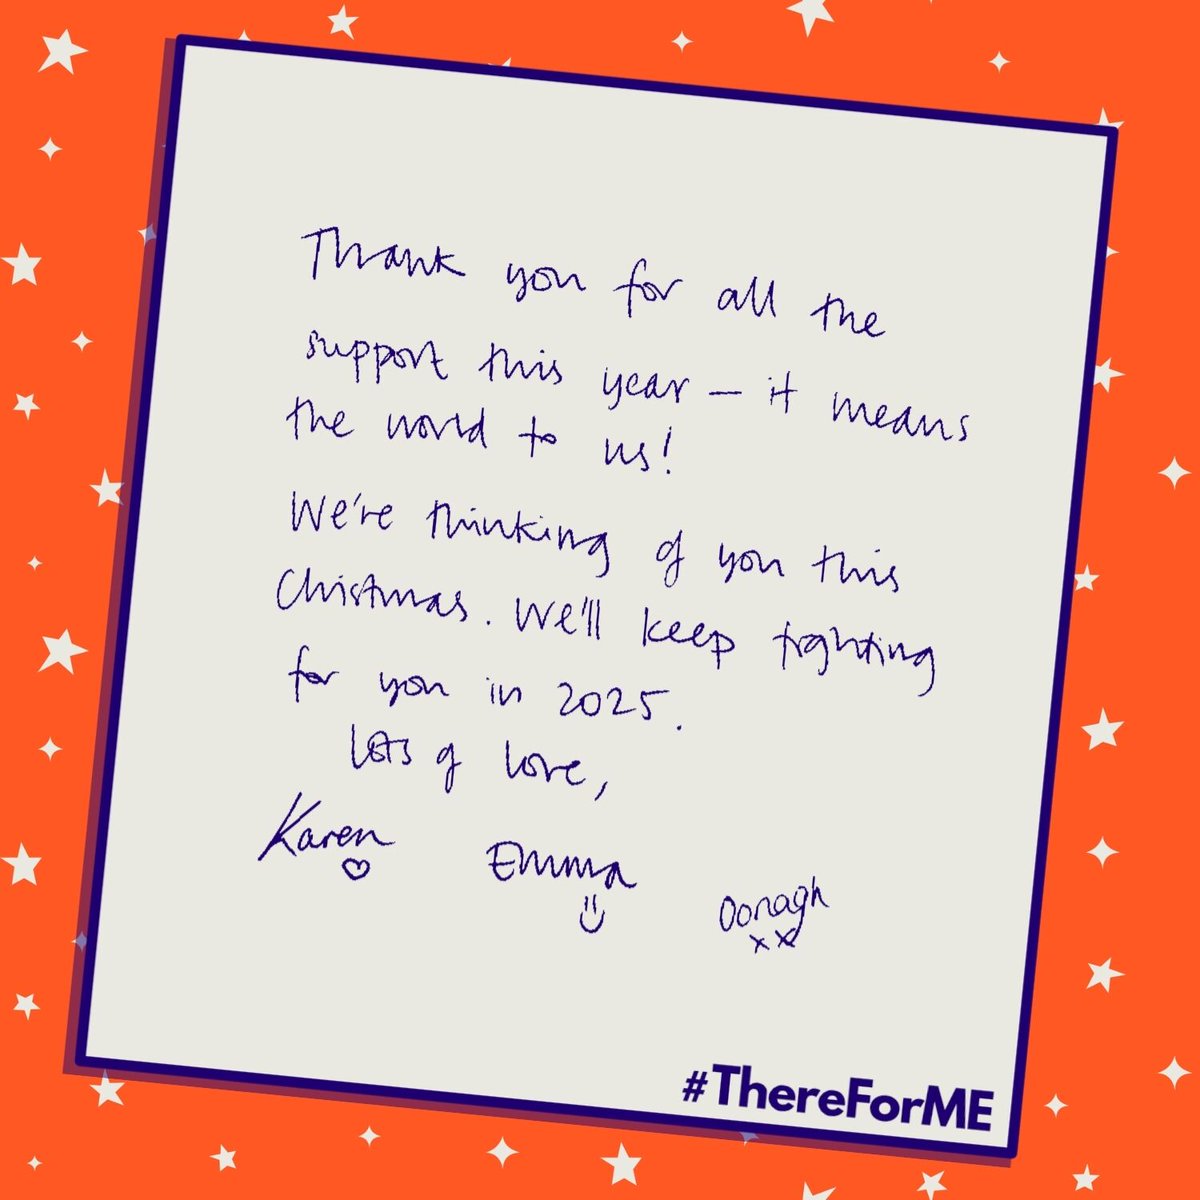 Thank you for all the
support this year – it means
the world to us!
We're thinking of you this
Christmas. We'll keep fighting
for you in 2025.
Lots of love,
Karen
Emma
Oonagh
xx
#ThereForME